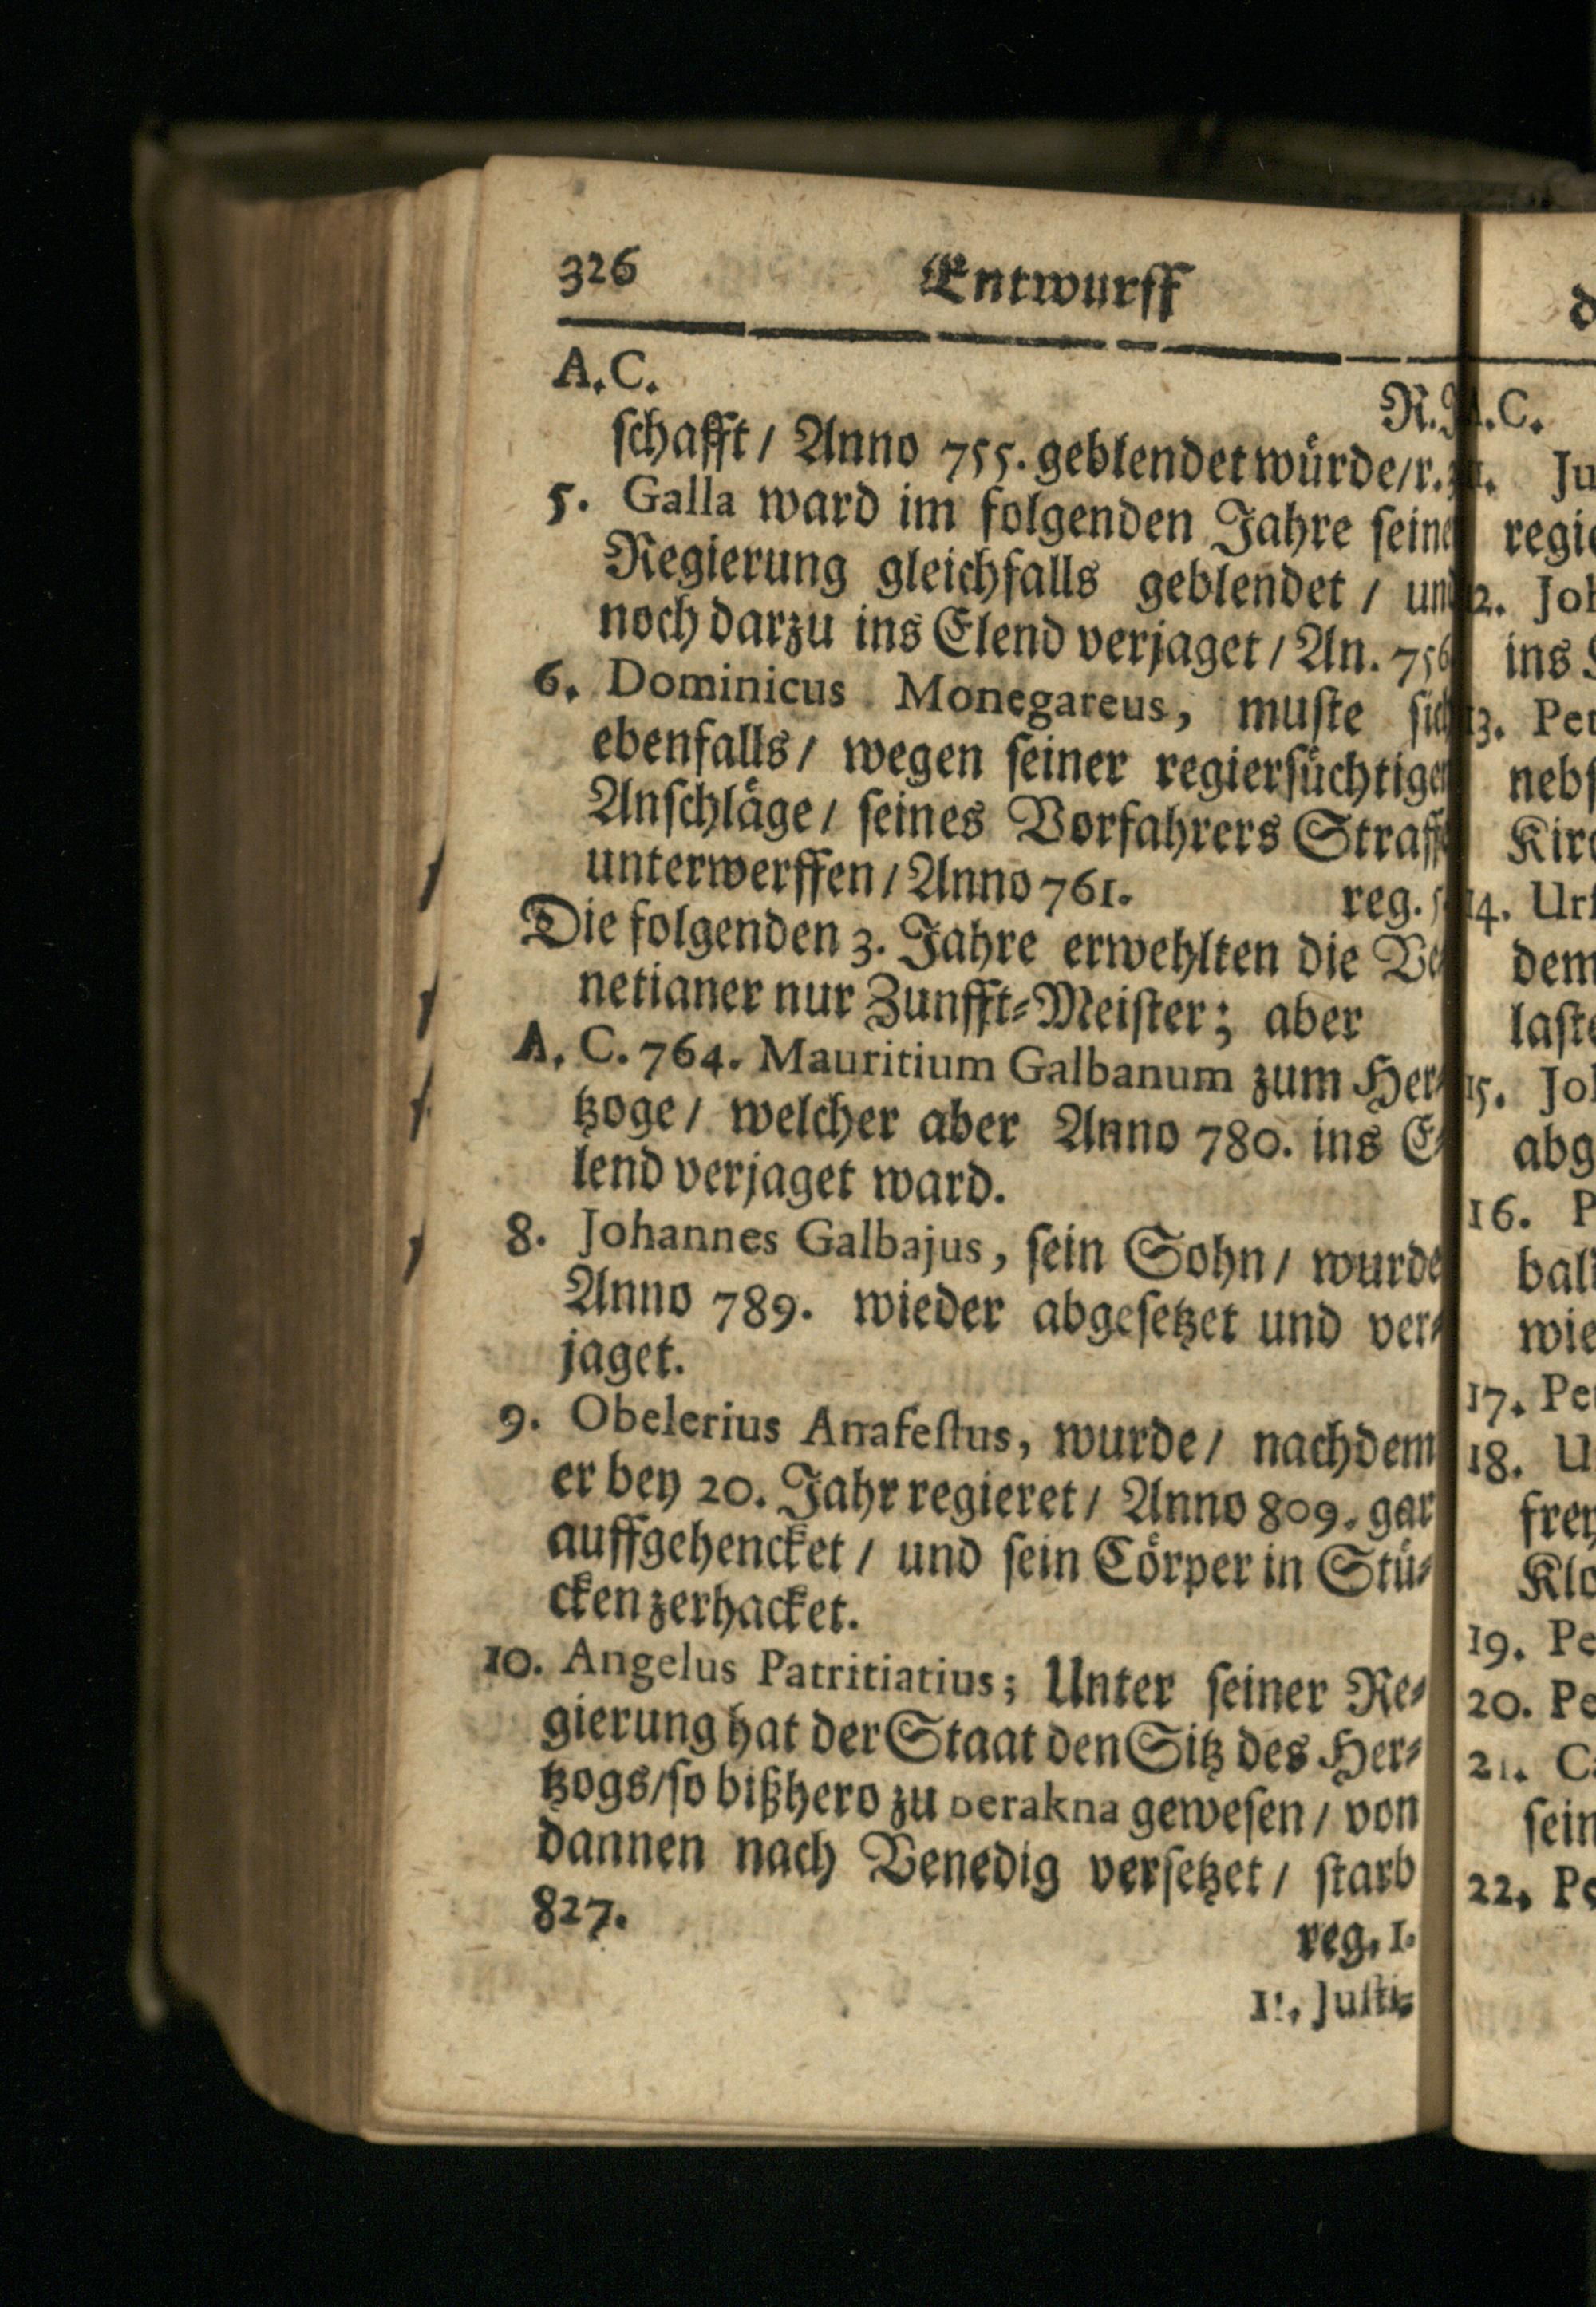 326 Entwurff
A. C. R.
schafft / Anno 755. geblendet würde/r.
5. Galla ward im folgenden Jahre seiner
Regierung gleichfalls geblendet / und
noch darzu ins Elend verjaget / An. 756
6. Dominicus Monegareus, muste sich
ebenfalls / wegen seiner regiersüchtigen
Anschläge / seines Vorfahrers Straffe
unterwerffen / Anno 761. reg.
Die folgenden 3. Jahre erwehlten die Ve-
netianer nur Zunfft-Meister; aber
A. C. 764. Mauritium Galbanum zum Her-
tzoge / welcher aber Anno 780. ins E-
lend verjaget ward.
8. Johannes Galbajus, sein Sohn / wurde
Anno 789. wieder abgesetzet und ver-
jaget.
9. Obelerius Anafestus, wurde / nachdem
er bey 20. Jahr regieret / Anno 809. gar
auffgehencket / und sein Cörper in Stü-
cken zerhacket.
10. Angelus Patritiatius; Unter seiner Re-
gierung hat der Staat den Sitz des Her-
tzogs/so bißhero zu Derakna gewesen / von
dannen nach Venedig versetzet / starb
827. reg. 1.
11. Justi-
A.C.
11. Ju
regie
12. Joh
ins
13. Pet
nebs
Kirc
14. Urs
dem
laste
15. Joh
abg
16. P
bali
wie
17. Pe
18. U
frey
Klo
19. Pe
20. Pe
21. C
sein
22. Pe